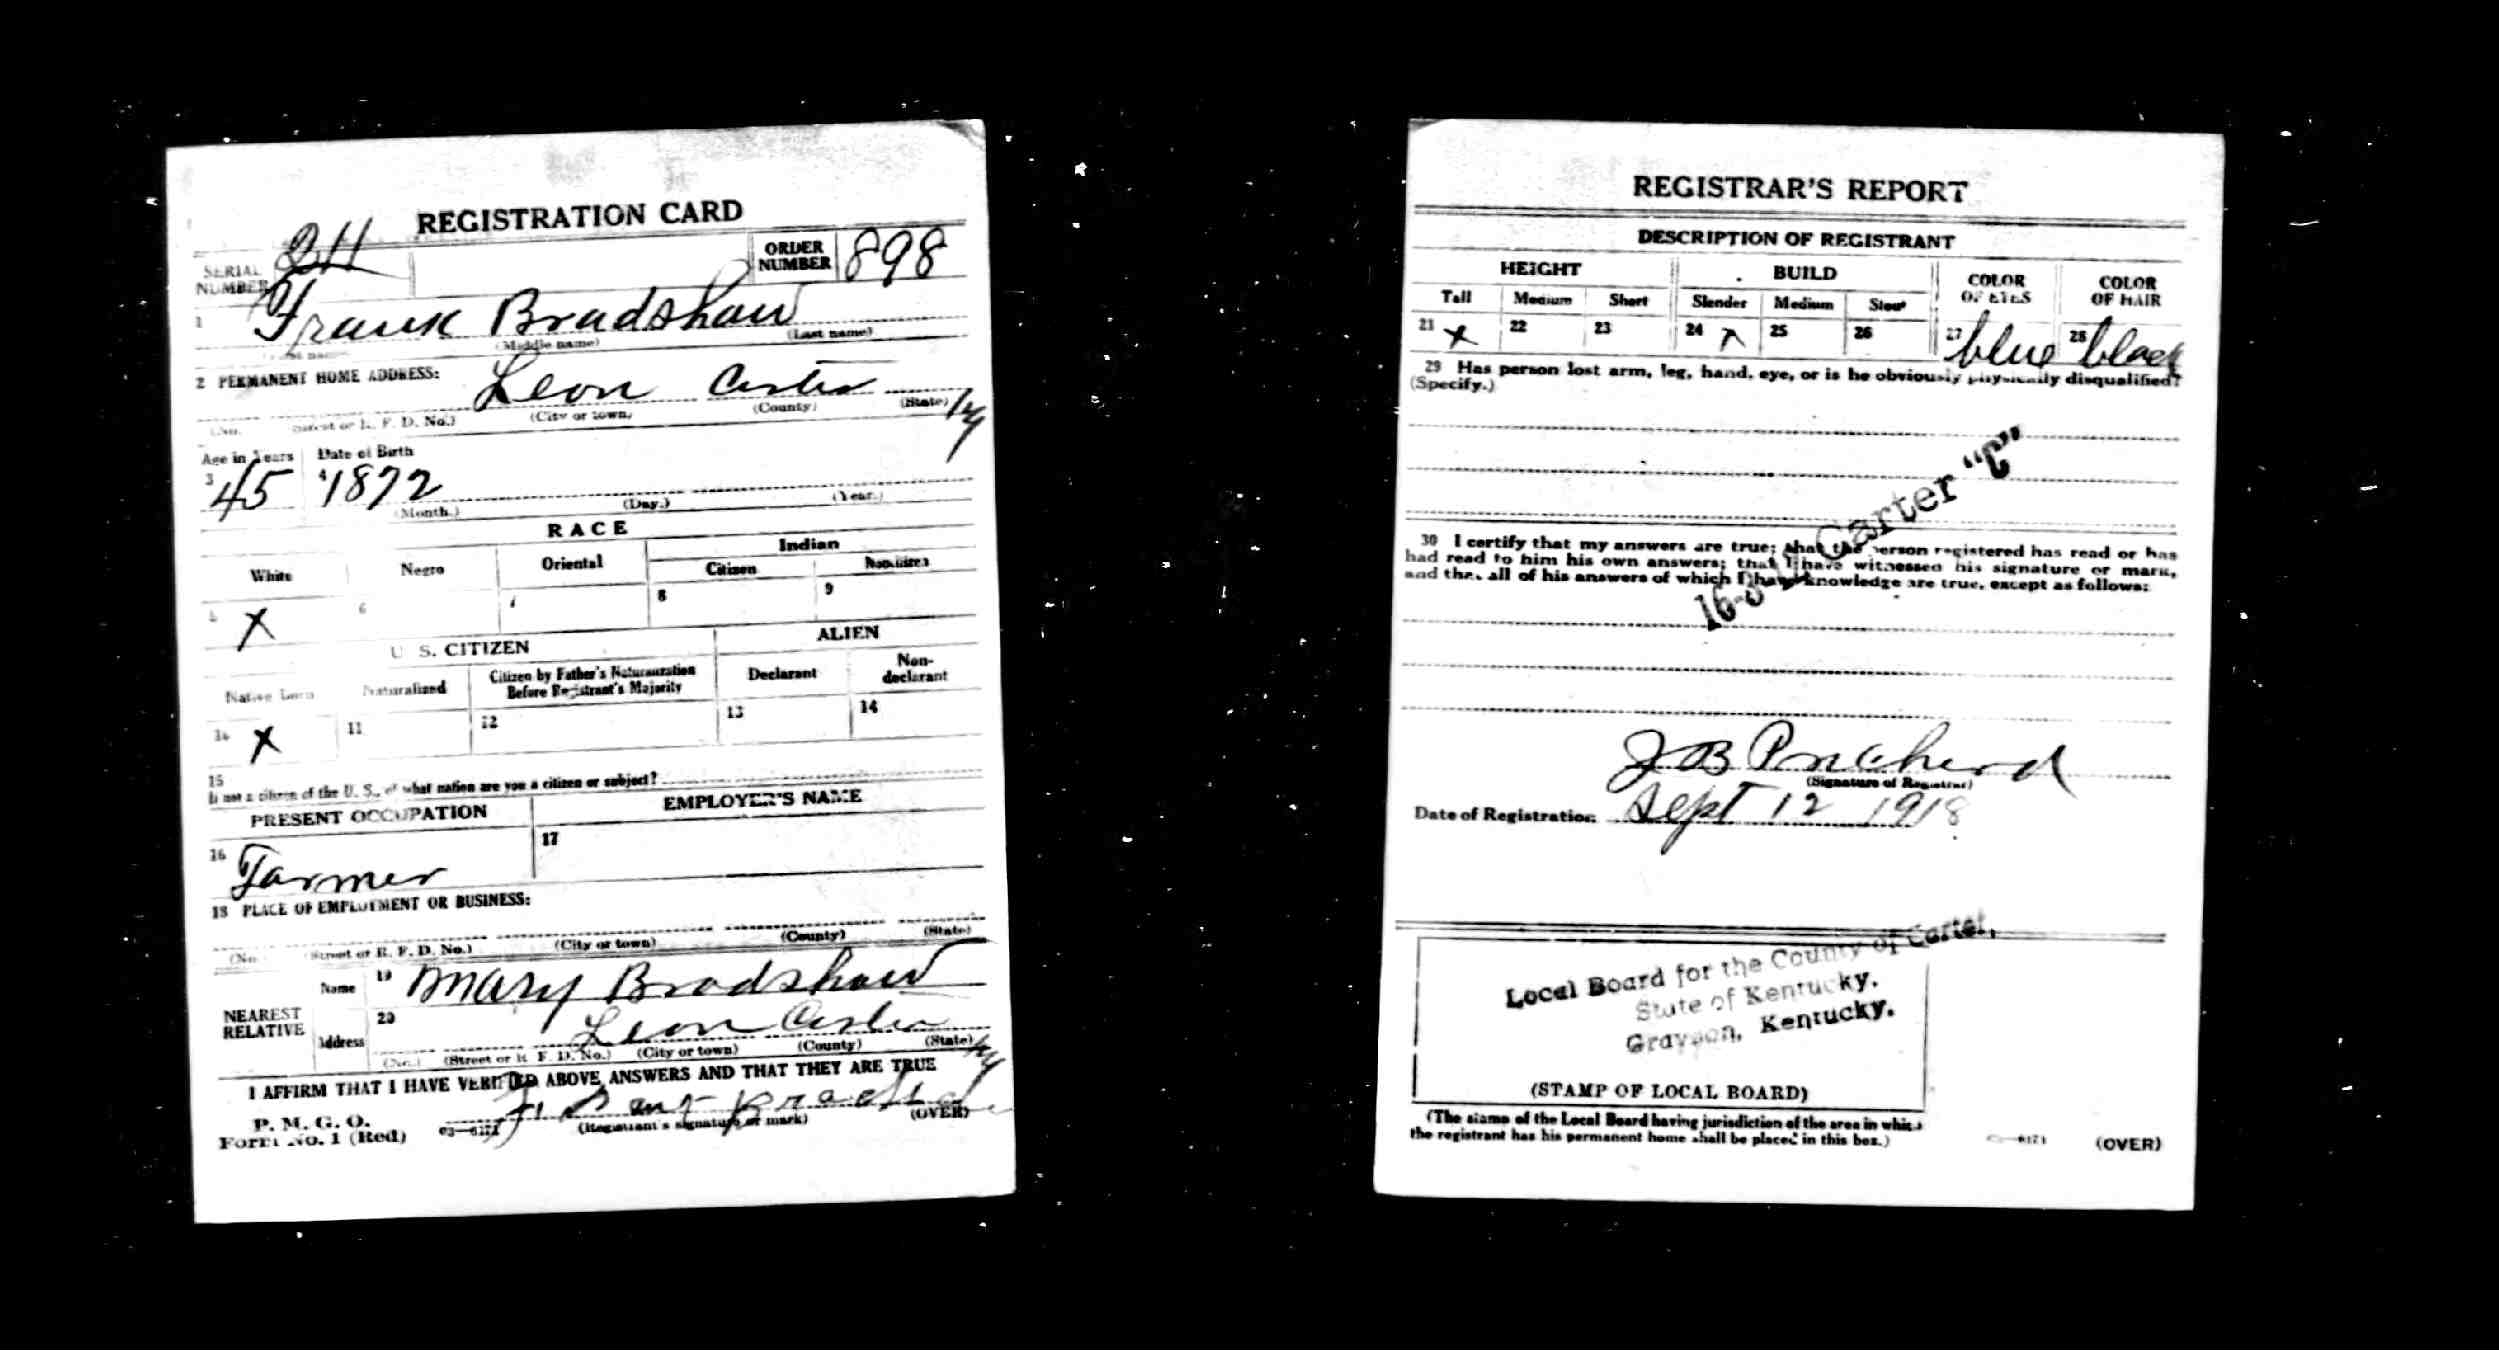 REGISTRATION CARD
SERIAL NUMBER
ORDER NUMBER 898
1 Frank Bradshaw
(Middle name) (Last name)
2 PERMANENT HOME ADDRESS: Leon Carter Ky
(No.) (Street or R. F. D. No.) (City or town) (County) (State)
Age in Years Date of Birth
3 45 4 1872
(Month.) (Day.) (Year.)
RACE
White Negro Oriental Indian
Citizen Noncitizen
5 X 6 7 8 9
U. S. CITIZEN ALIEN
Native Born Naturalized Citizen by Father's Naturalization Before Registrant's Majority Declarant Non-declarant
10 X 11 12 13 14
15
If not a citizen of the U. S., of what nation are you a citizen or subject?
PRESENT OCCUPATION EMPLOYER'S NAME
16 Farmer 17
18 PLACE OF EMPLOYMENT OR BUSINESS:
(No.) (Street or R. F. D. No.) (City or town) (County) (State)
NEAREST RELATIVE
Name 19 Mary Bradshaw
Address 20 Leon Carter Ky
(No.) (Street or R. F. D. No.) (City or town) (County) (State)
I AFFIRM THAT I HAVE VERIFIED ABOVE ANSWERS AND THAT THEY ARE TRUE
P. M. G. O.
Form No. 1 (Red) 03—6171 (Registrant's signature or mark) (OVER)
REGISTRAR'S REPORT
DESCRIPTION OF REGISTRANT
HEIGHT BUILD COLOR OF EYES COLOR OF HAIR
Tall Medium Short Slender Medium Stout
21 X 22 23 24 X 25 26 27 blue 28 black
29 Has person lost arm, leg, hand, eye, or is he obviously physically disqualified?
(Specify.)
Carter "C"
30 I certify that my answers are true; that the person registered has read or has
had read to him his own answers; that I have witnessed his signature or mark,
and that all of his answers of which I have knowledge are true, except as follows:
J B
(Signature of Registrar)
Date of Registration Sept 12 1918
Local Board for the County of Carter,
State of Kentucky.
Grayson, Kentucky.
(STAMP OF LOCAL BOARD)
(The stamp of the Local Board having jurisdiction of the area in which
the registrant has his permanent home shall be placed in this box.)
03—6171 (OVER)